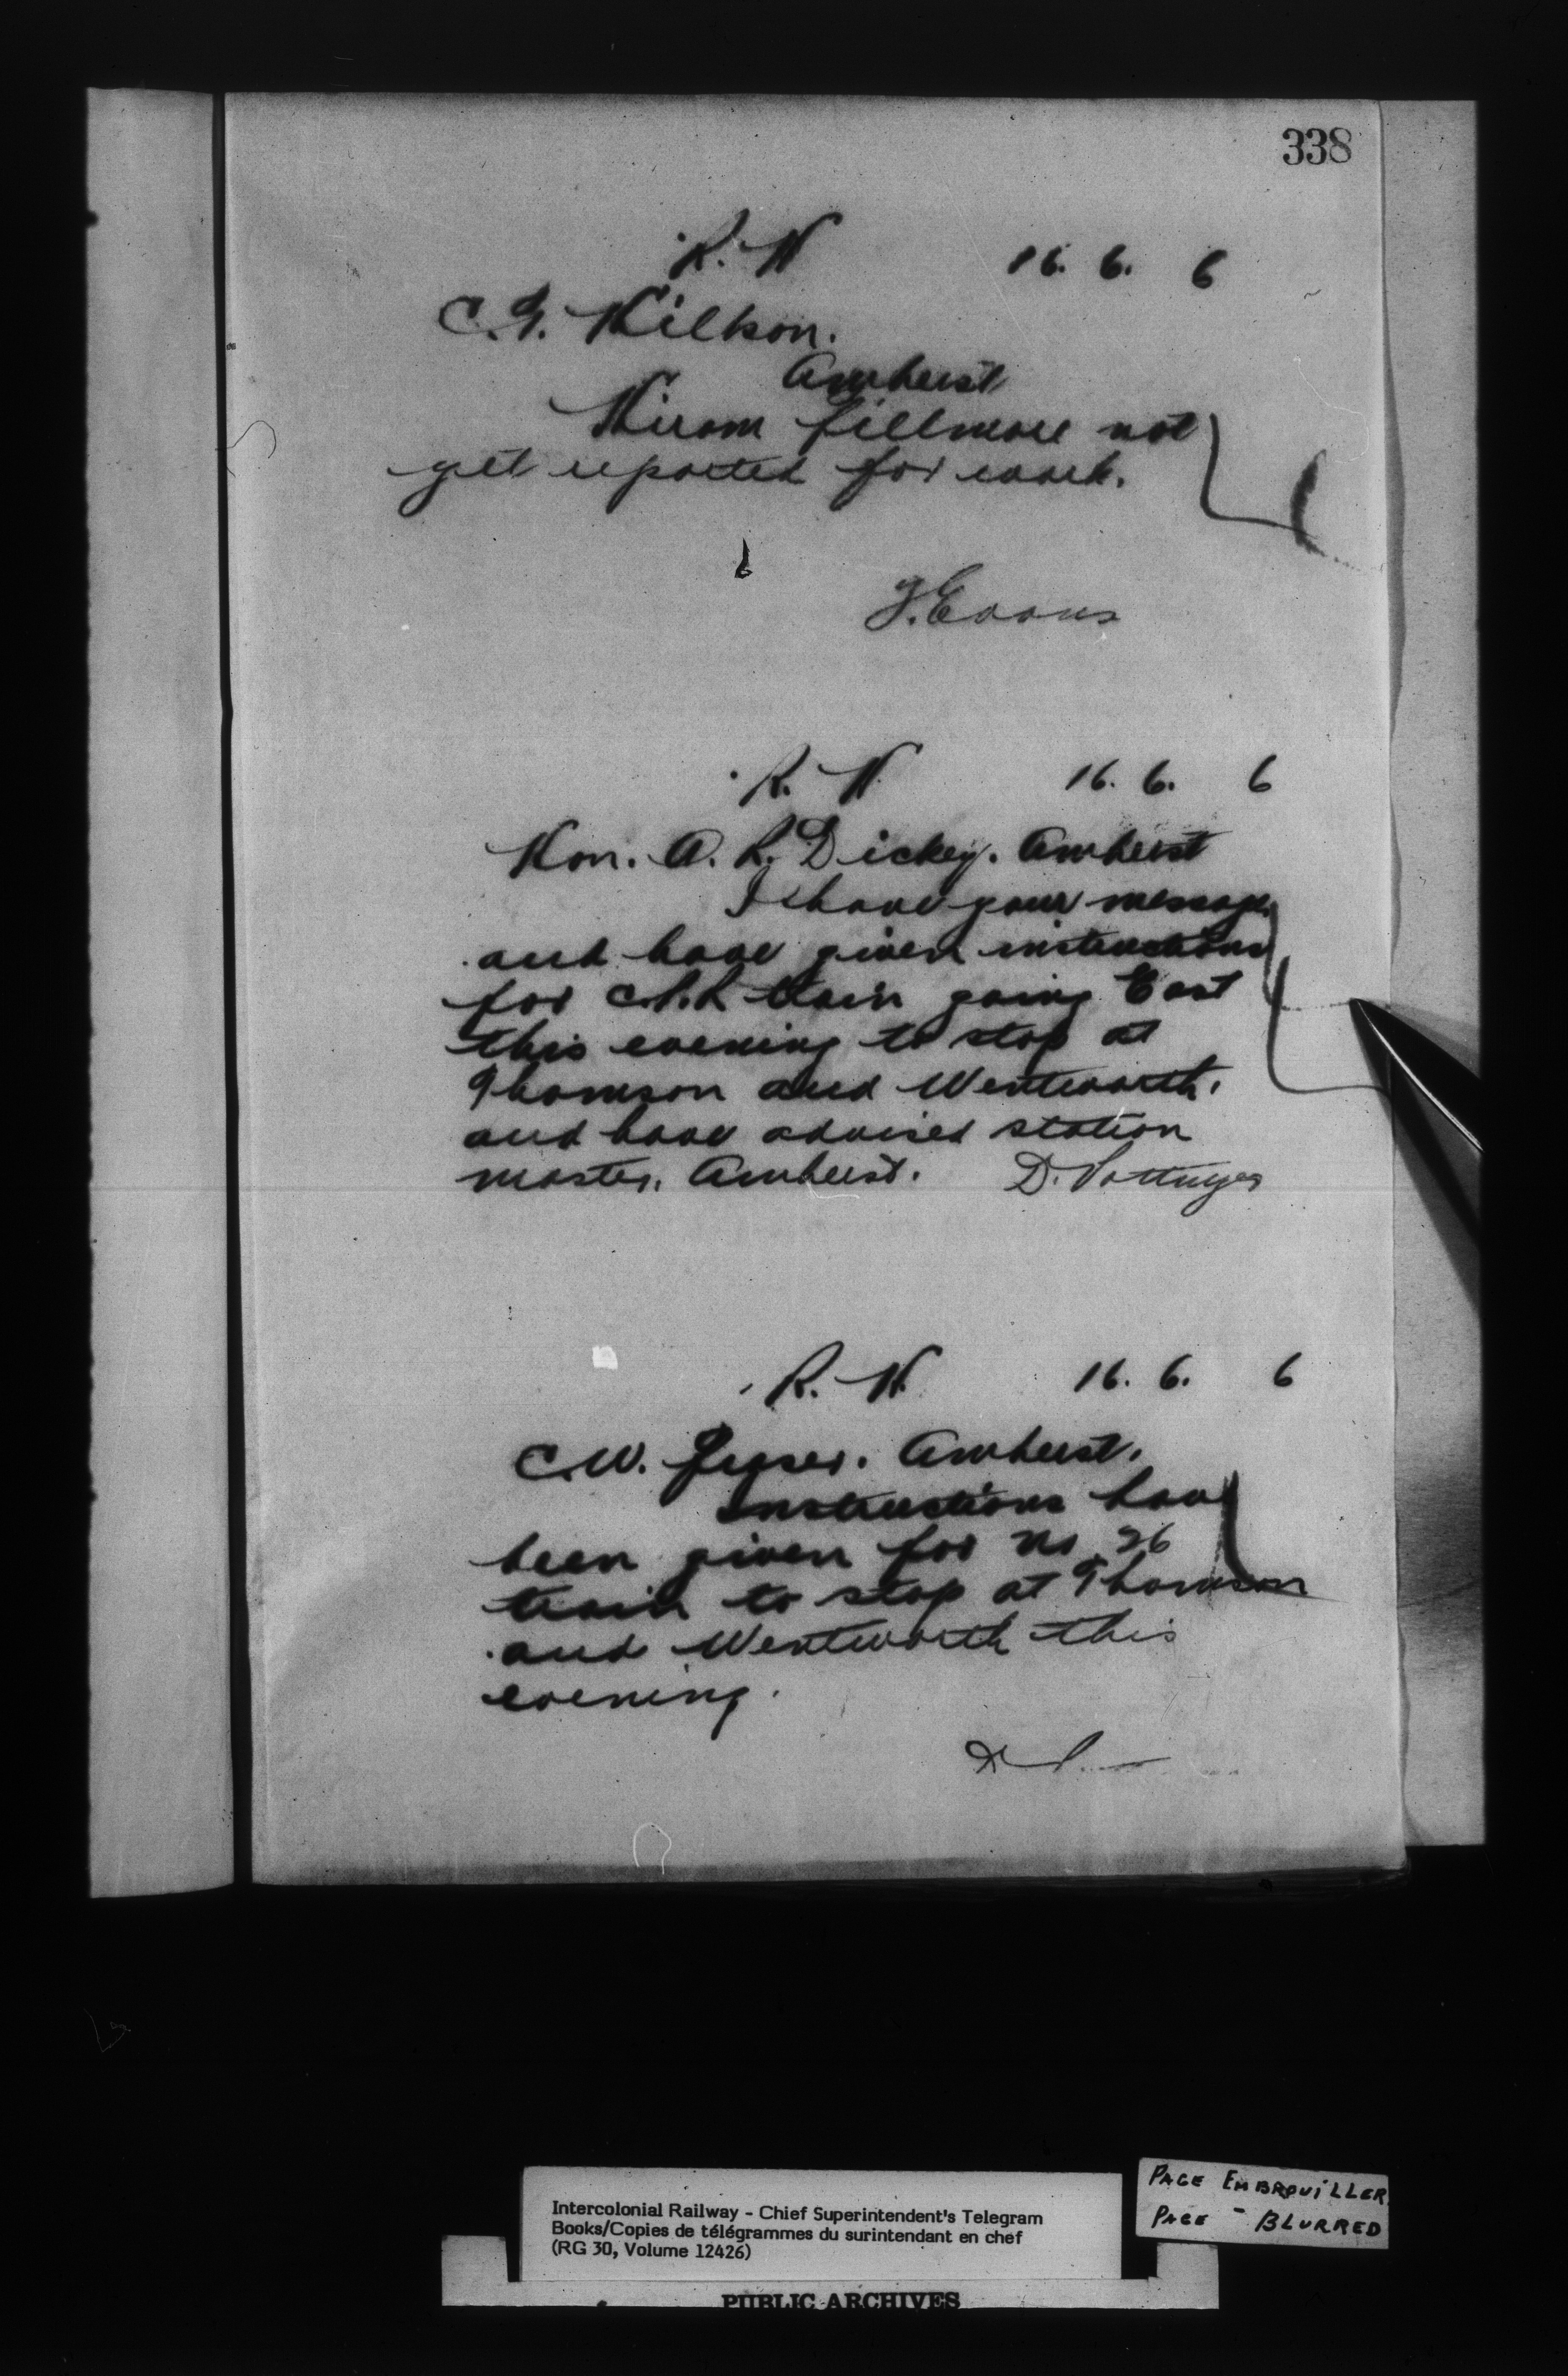 338
R. N 16. 6. 6
C. J.
Amherst
Hiram Fillmore not
yet reported for work.
J. Evans
R. N 16. 6. 6
Hon. A. R. Dickey. Amherst
I have your message
and have given instructions
for C.P.R train going East
this evening to stop at
Thomson and Wentworth.
and have advised station
master, Amherst. D. Pottinger
R. N 16. 6. 6
C. W. Amherst.
Instructions have
been given for No 26
train to stop at Thomson
and Wentworth this
evening.
D P.
Intercolonial Railway - Chief Superintendent's Telegram
Books/Copies de télégrammes du surintendant en chef
(RG 30, Volume 12426)
PAGE EMBROUILLER
PAGE - BLURRED
PUBLIC ARCHIVES